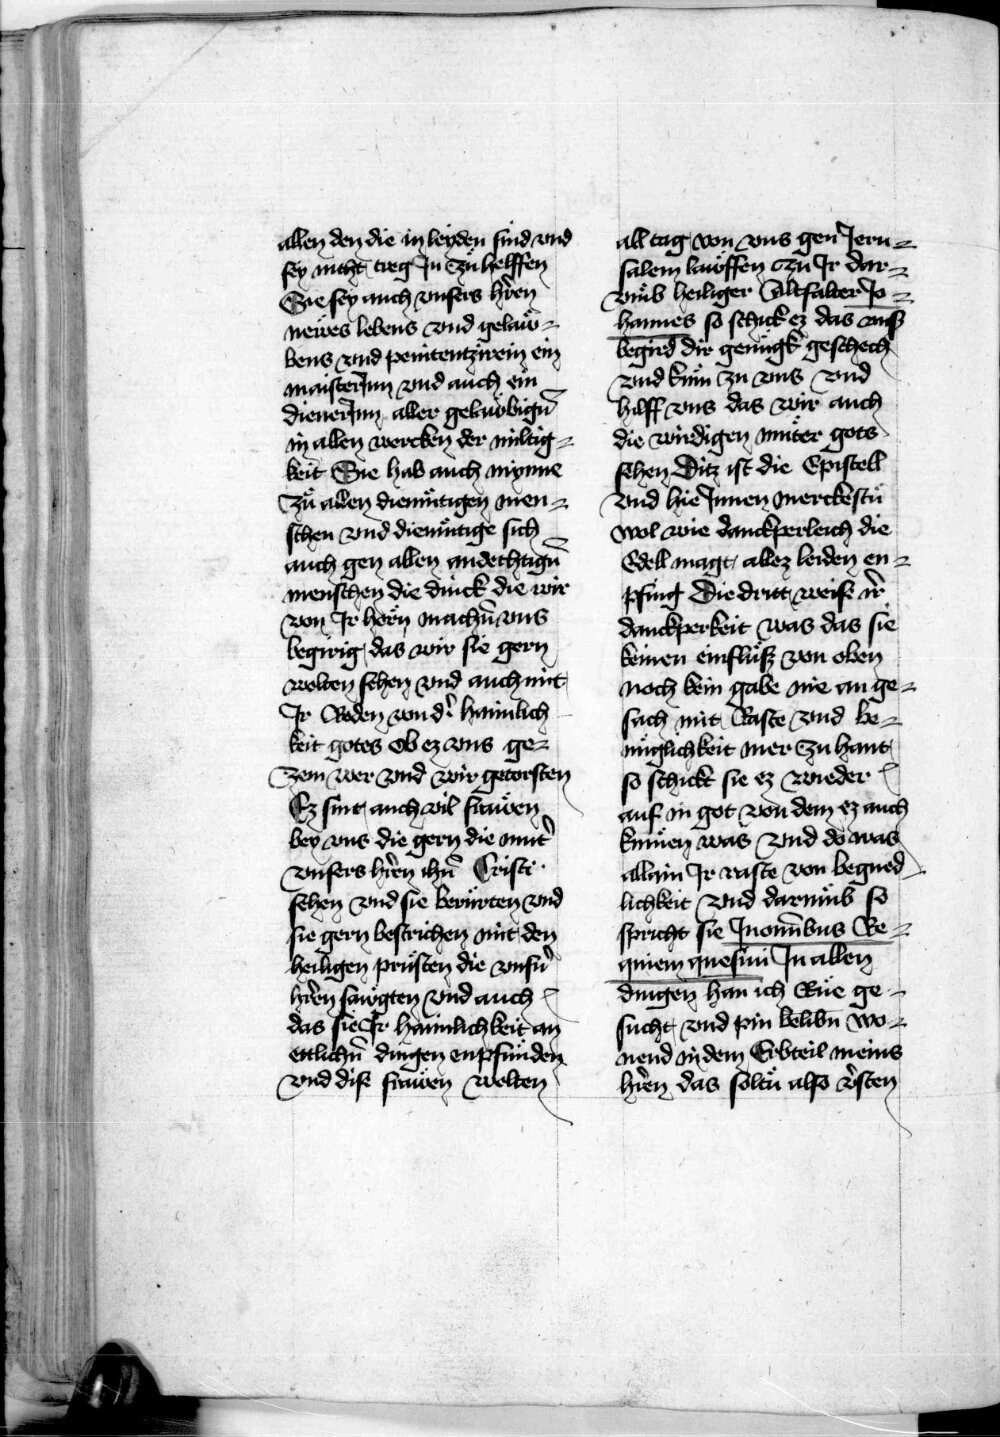 allen den die in leyden sind vnd
sey nicht treg Jn zů helffen
Sie sey auch vnsers hr̄en
newes lebens vnd gelaw-
bens vnd penitentzirein ein
maisterJnn vnd auch ein
dienerJnn aller gelaubign̄
in allen wercken der miltig-
keit Sie hab auch mynne
zů allen diemütigen men-
schen vnd diemütige sich
auch gen allen andechtign̄
menschen die dinck die wir
von Jr hörn machn̄ vns
begirig das wir sie gern
wolten sehen vnd auch mit
Jr Reden von dr̄ haimlich
keit gotes ob ez vns ge-
zem wer vnd wir getorsten
Ez sint auch vil frawen
bey vns die gern die mutr̄
vnsers hr̄en ihū Cristi
sehen vnd sie berürten vnd
sie gern bestrichen mit den
heiligen prüsten die vnsr̄n
hr̄en saugten vnd auch
das sie Jr haimlichkeit an
ettlichn̄ dingen enpfunden
vnd dise frawen wolten
all tag von vns gen Jeru-
salem lauffen zu Jr dar-
vmb heiliger Altfatter Jo-
hannes so schick ez das vnß
begird dir genugk geschech
vnd kum zu vns vnd
hilff vns das wir auch
die wirdigen muter gots
sehen Ditz ist die Epistell
vnd hie Jnnen merckestu
wol wie danckperleich die
Edell magt allez leiden en-
pfing Die dritt weise ir̄
danckperkeit was das sie
keinen einfluß von oben
noch kein gabe nie an ge-
sach mit Raste vnd be-
nüglichkeit mer zu hant
so schickt sie ez wieder
auf in got von dem ez auch
kumen was vnd do was
allain Jr raste von begned
lichkeit vnd darumb so
spricht sie Jn omn̄bus Re-
quiem quesiui Jn allen
dingen han ich Rue ge-
sucht vnd pin belibn̄ wo-
nend in dem Erbteil meins
hr̄en das soltu also v̄sten